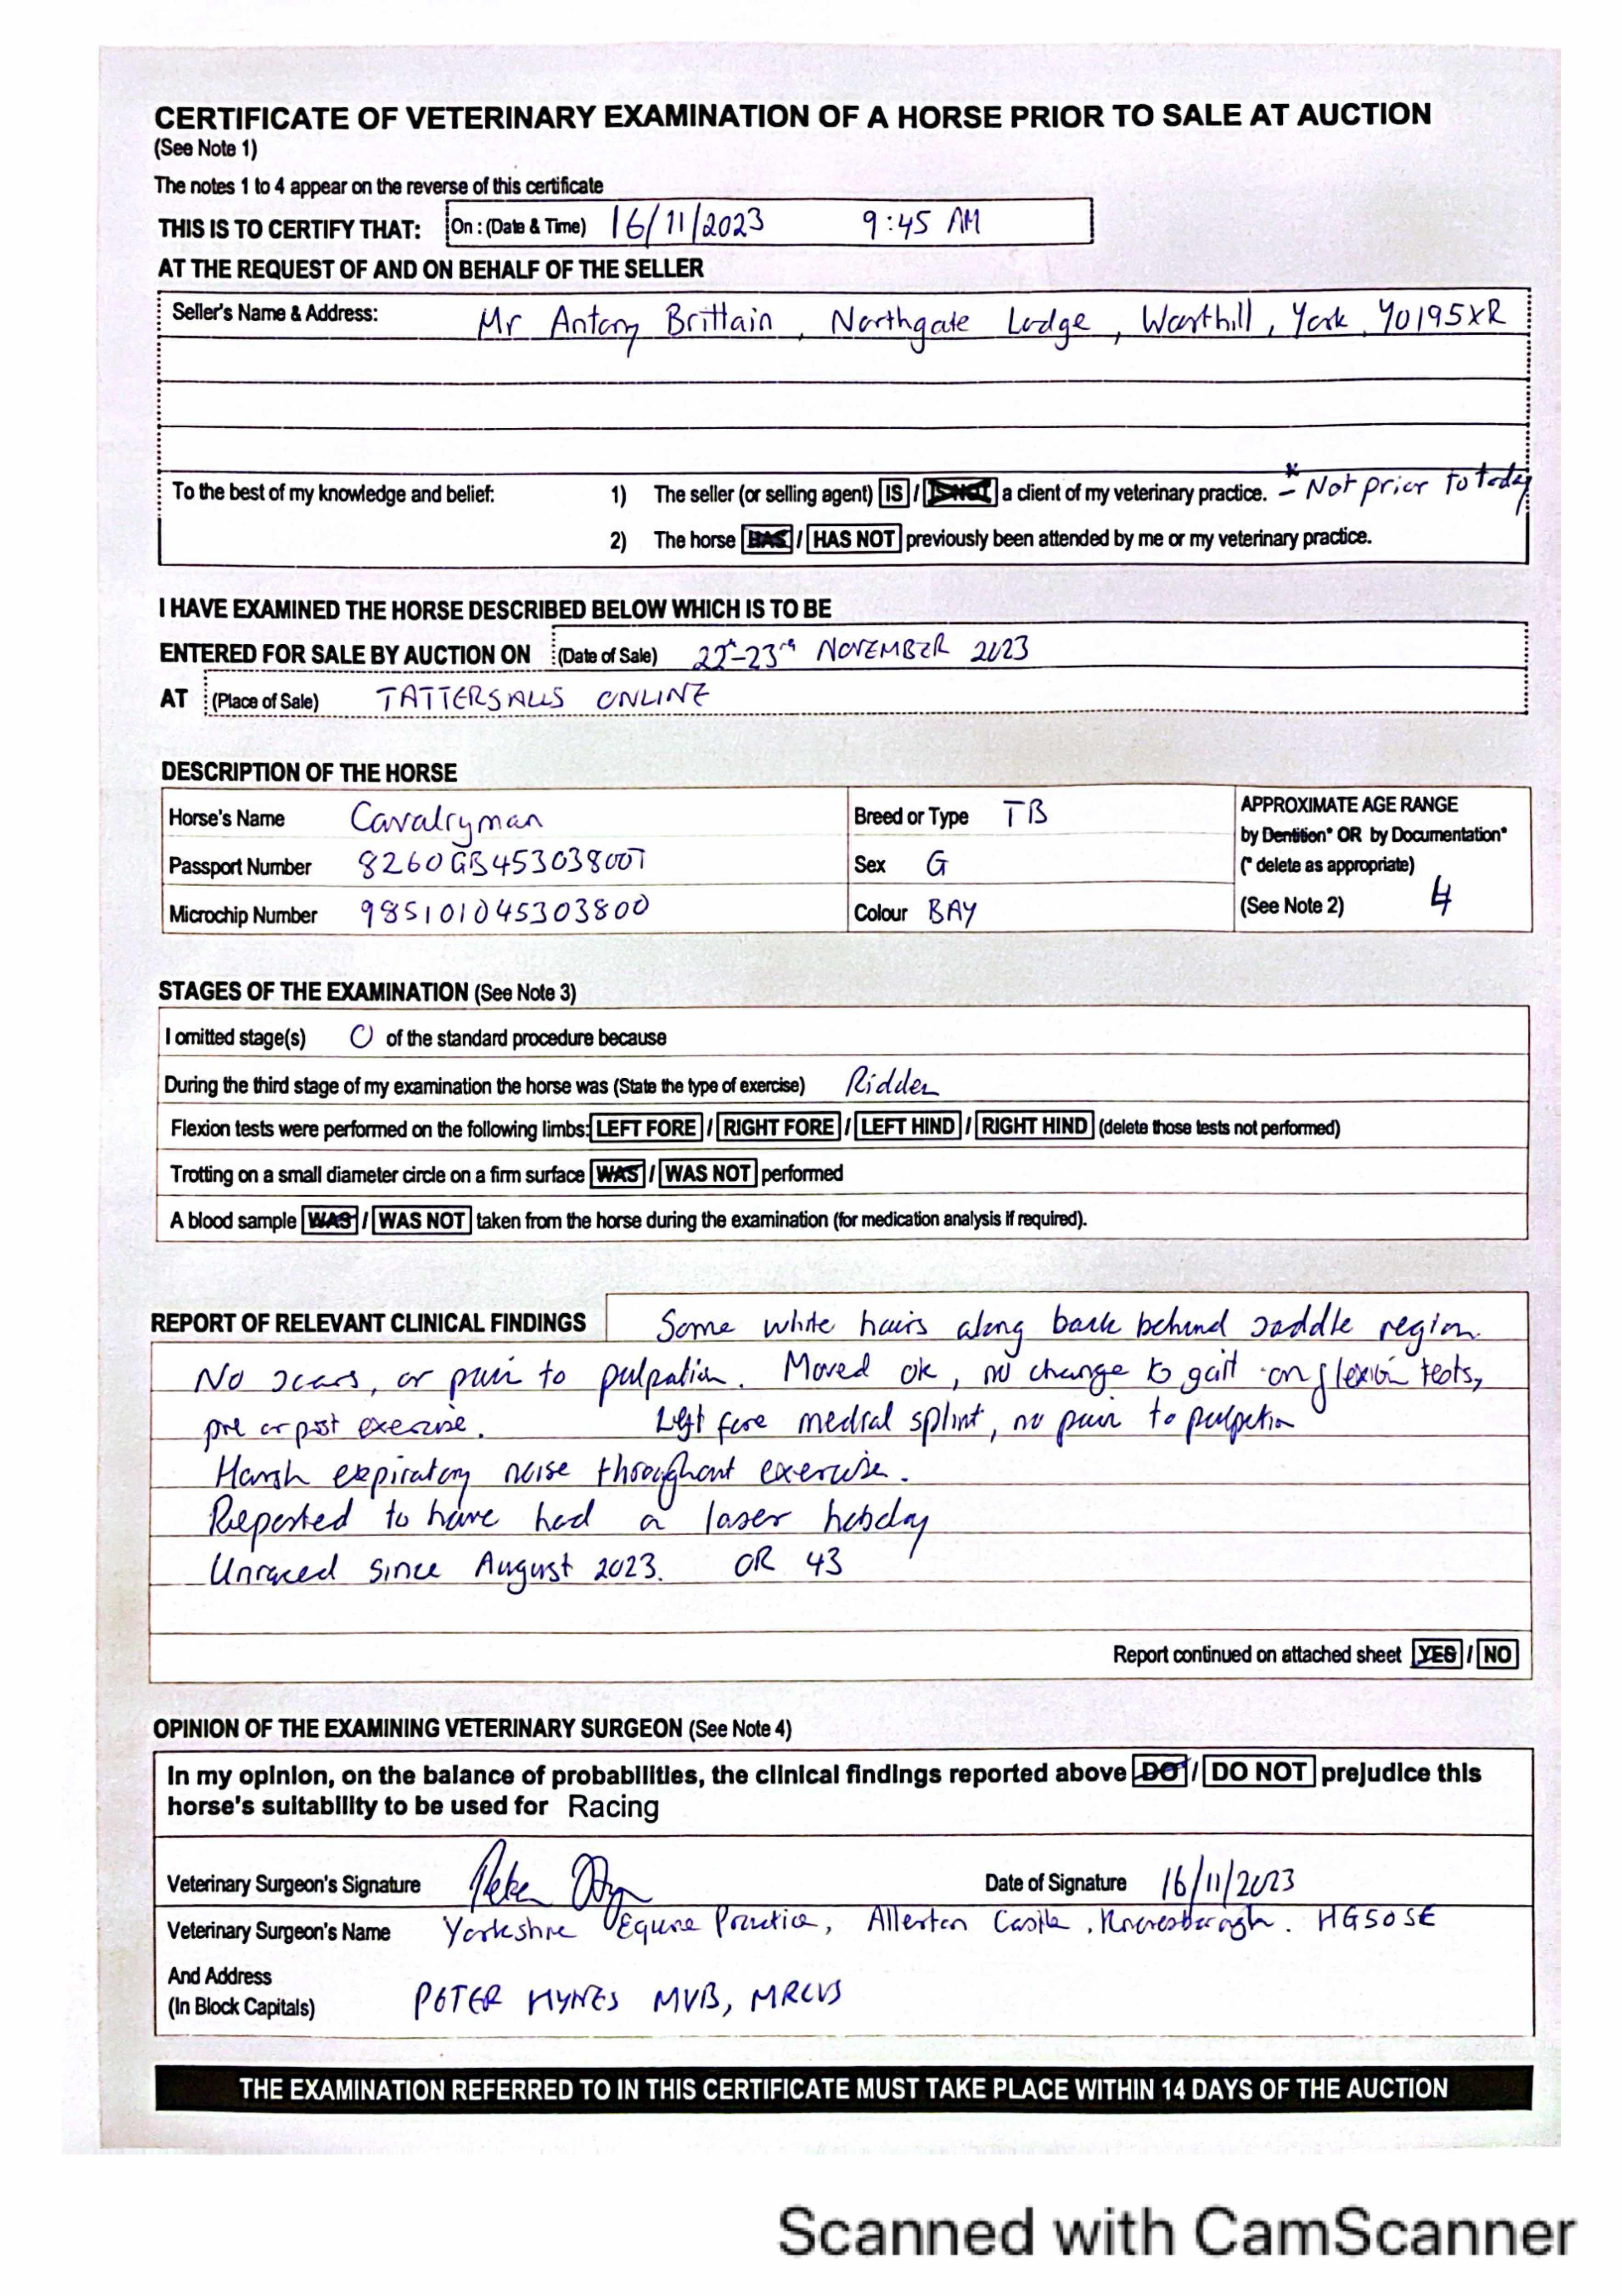 CERTIFICATE OF VETERINARY EXAMINATION OF A HORSE PRIOR TO SALE AT AUCTION
(See Note 1)
The notes 1 to 4 appear on the reverse of this certificate
THIS IS TO CERTIFY THAT: On : (Date & Time) 16/11/2023 9:45 AM
AT THE REQUEST OF AND ON BEHALF OF THE SELLER
Seller's Name & Address: Mr Antony Brittain, Northgate Lodge, Warthill, York, YO195XR
To the best of my knowledge and belief: 1) The seller (or selling agent) IS / IS NOT a client of my veterinary practice. * - Not prior to today
2) The horse HAS / HAS NOT previously been attended by me or my veterinary practice.
I HAVE EXAMINED THE HORSE DESCRIBED BELOW WHICH IS TO BE
ENTERED FOR SALE BY AUCTION ON (Date of Sale) 22nd-23rd NOVEMBER 2023
AT (Place of Sale) TATTERSALLS ONLINE
DESCRIPTION OF THE HORSE
Horse's Name Cavalryman Breed or Type TB APPROXIMATE AGE RANGE
by Dentition* OR by Documentation*
Passport Number 8260GB45303800T Sex G (* delete as appropriate)
Microchip Number 985101045303800 Colour BAY (See Note 2) 4
STAGES OF THE EXAMINATION (See Note 3)
I omitted stage(s) 0 of the standard procedure because
During the third stage of my examination the horse was (State the type of exercise) Ridden
Flexion tests were performed on the following limbs: LEFT FORE / RIGHT FORE / LEFT HIND / RIGHT HIND (delete those tests not performed)
Trotting on a small diameter circle on a firm surface WAS / WAS NOT performed
A blood sample WAS / WAS NOT taken from the horse during the examination (for medication analysis if required).
REPORT OF RELEVANT CLINICAL FINDINGS Some white hairs along back behind saddle region.
No scars, or pain to palpation. Moved ok, no change to gait on flexion tests,
pre or post exercise. Left fore medial splint, no pain to palpation
Harsh expiratory noise throughout exercise.
Reported to have had a laser hobday
Unraced since August 2023. OR 43
Report continued on attached sheet YES / NO
OPINION OF THE EXAMINING VETERINARY SURGEON (See Note 4)
In my opinion, on the balance of probabilities, the clinical findings reported above DO / DO NOT prejudice this
horse's suitability to be used for Racing
Veterinary Surgeon's Signature Peter Hynes Date of Signature 16/11/2023
Veterinary Surgeon's Name Yorkshire Equine Practice, Allerton Castle, Knaresborough. HG50SE
And Address
(In Block Capitals) PETER HYNES MVB, MRCVS
THE EXAMINATION REFERRED TO IN THIS CERTIFICATE MUST TAKE PLACE WITHIN 14 DAYS OF THE AUCTION
Scanned with CamScanner